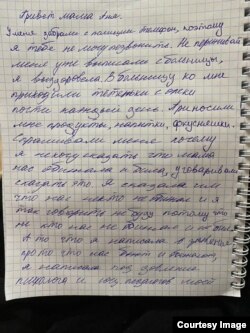 Привет мама Аня.
У меня забрали с полиции телефон, поэтому
я тебе не могу позвонить. Не переживай
меня уже выписали с больницы,
я выздоровела. В больницу ко мне
приходили тётеньки с опеки
почти каждый день. Приносили
мне продукты, напитки, вкусняшки.
Спрашивали меня почему
я не хочу сказать что мама
нас обижала и била, уговаривали
сказать что я сказала им
что нас никто не бил и я
так говорить не буду потому что
не кто нас не и не бил
А то что я написала в заявлении
про то что нас бьют и обижают,
я написала под давлением
психолога и педагогов моей
Courtesy Image